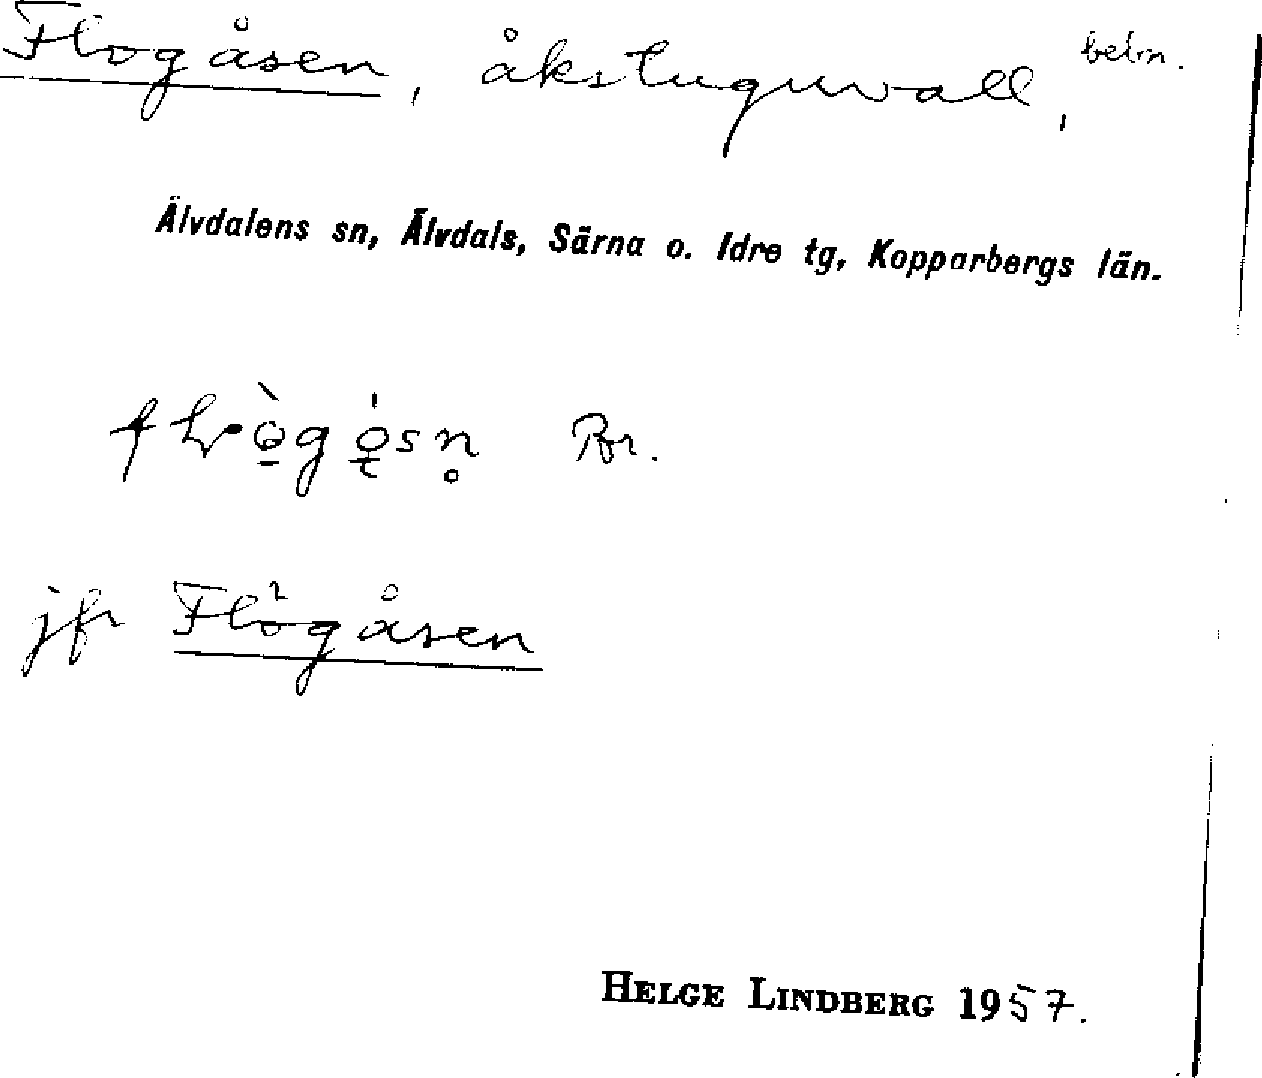 Flogåsen, åkstuguvall, bebn.
Älvdalens sn, Älvdals, Särna o. Idre tg, Kopparbergs län.
jfr Flogåsen
HELGE LINDBERG 1957.